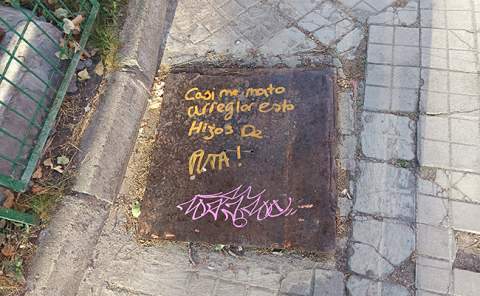 Casi me mato
arreglar esto
Hijos De
PUTA!